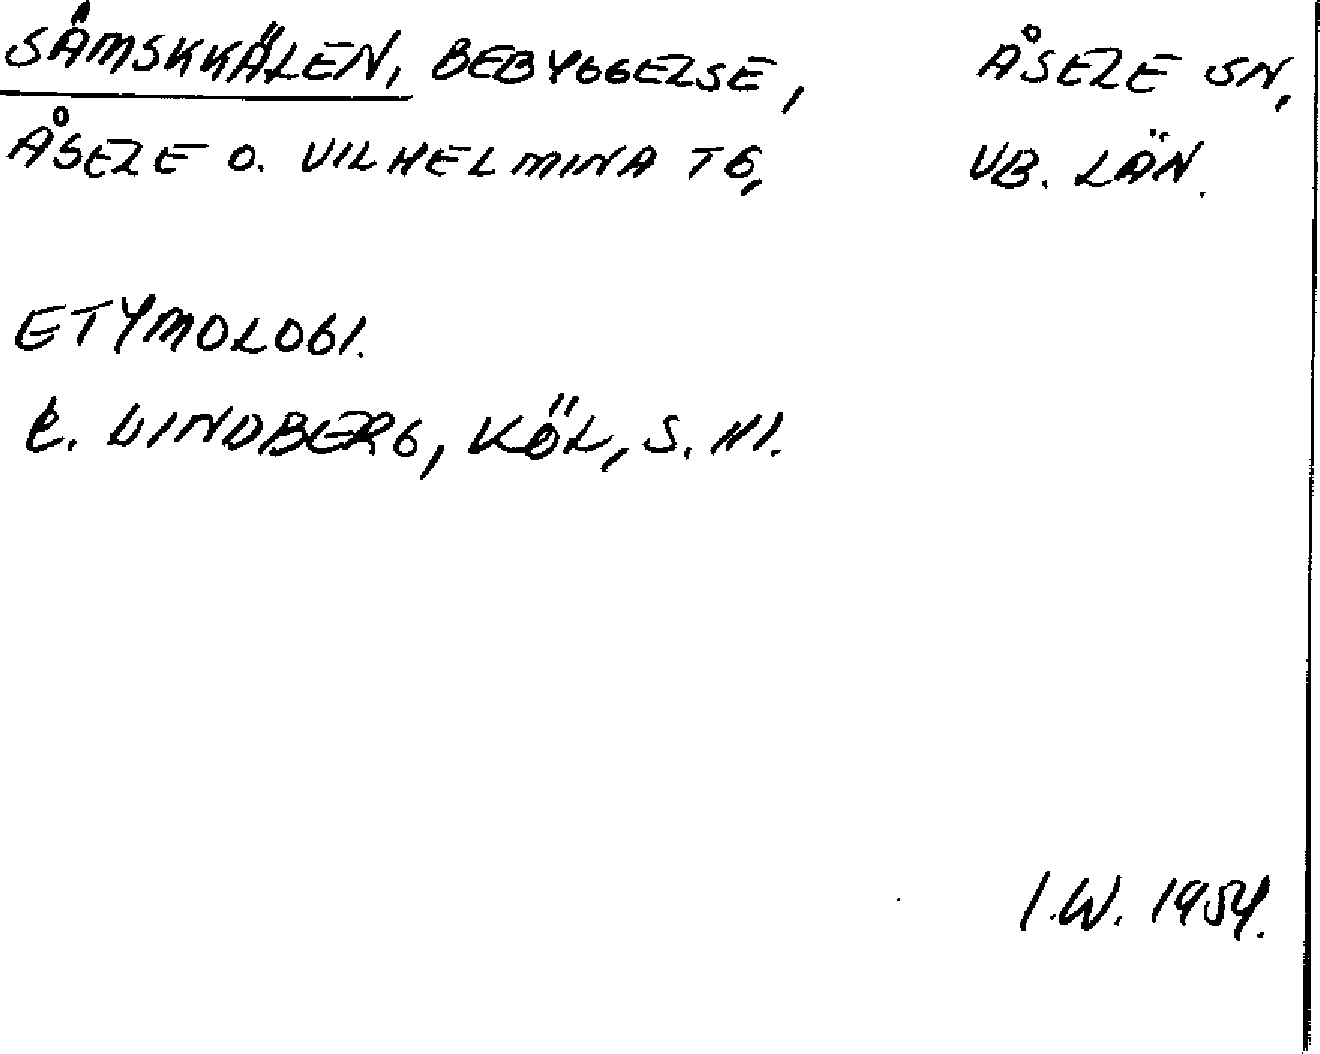 SÅMSKKÄLEN, BEBYGGELSE, ÅSELE SN,
ÅSELE O. VILHELMINA TG, VB. LÄN.
ETYMOLOGI.
LINDBERG, KÖL, S. 111.
I.W. 1954.